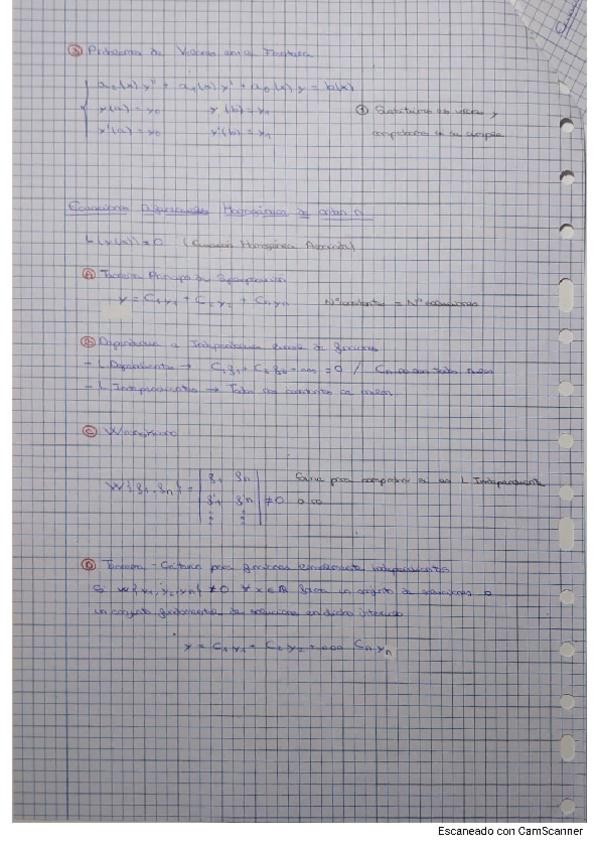 ③ Problema de Valores en la Frontera
a₂(x)y'' + a₁(x)y' + a₀(x)y = b(x)
y(a) = y₀ y(b) = y₁ ① Sustituimos los valores y
y'(a) = y₀ y'(b) = y₁ comprobamos si se cumple
Ecuaciones Diferenciales Homogéneas de orden n
L(y(x)) = 0 (Ecuación Homogénea Asociada)
Ⓐ Teorema Principio de Superposición
y = C₁y₁ + C₂y₂ + Cnyn Nº constantes = Nº
Ⓑ Dependencia e Independencia lineal de funciones
- L Dependientes → C₁f₁ + C₂f₂ + ... = 0 / Cn no son todas nulas
- L Independientes → Todas las constantes se anulan
Ⓒ Wronskiano
W{f₁, fn} = | f₁ fn | Sirve para comprobar si es L Independiente
| f'₁ f'n | ≠ 0 o no
Ⓓ Teorema - Criterio para funciones linealmente independientes
Si W{y₁, y₂, yn} ≠ 0 ∀x ∈ un conjunto de soluciones
un conjunto fundamental de soluciones en dicho intervalo
y = C₁y₁ + C₂y₂ + ... Cnyn
Escaneado con CamScanner